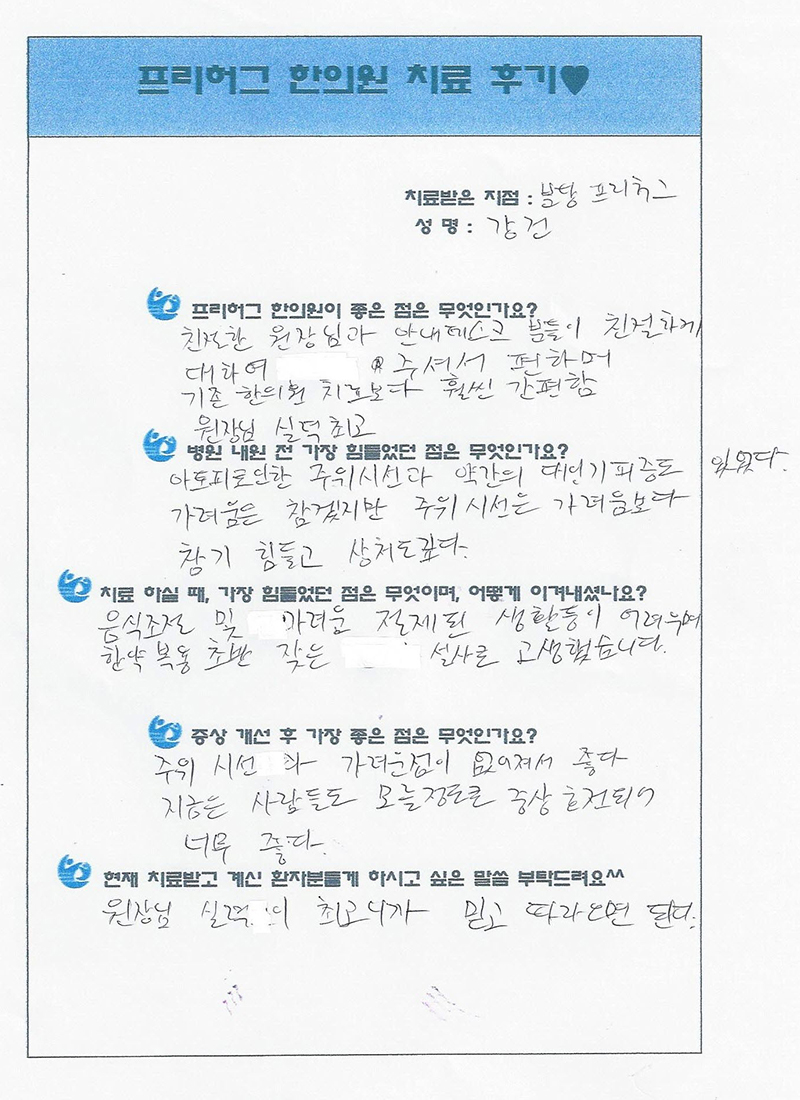 프리허그 한의원 치료 후기♥
치료받은 지점 : 분당 프리허그
성 명 : 강건
프리허그 한의원이 좋은 점은 무엇인가요?
친절한 원장님과 안내데스크 분들이 친절하게
대하여 주셔서 편하며
기존 한의원 치료보다 훨씬 간편함
원장님 실력최고
병원 내원 전 가장 힘들었던 점은 무엇인가요?
아토피로인한 주위시선과 약간의 대인기피증도 있었다.
가려움은 참겠지만 주위 시선은 가려움보다
참기 힘들고 상처도많다.
치료 하실 때, 가장 힘들었던 점은 무엇이며, 어떻게 이겨내셨나요?
음식조절 및 가려운 절제된 생활등이 어려우며
한약 복용 초반 잦은 설사로 고생했습니다.
증상 개선 후 가장 좋은 점은 무엇인가요?
주위 시선 과 가려운점이 없어져서 좋다
지금은 사람들도 모를정도로 증상 호전되어
너무 좋다.
현재 치료받고 계신 환자분들게 하시고 싶은 말씀 부탁드려요^^
원장님 실력 이 최고니까 믿고 따라오면 된다.